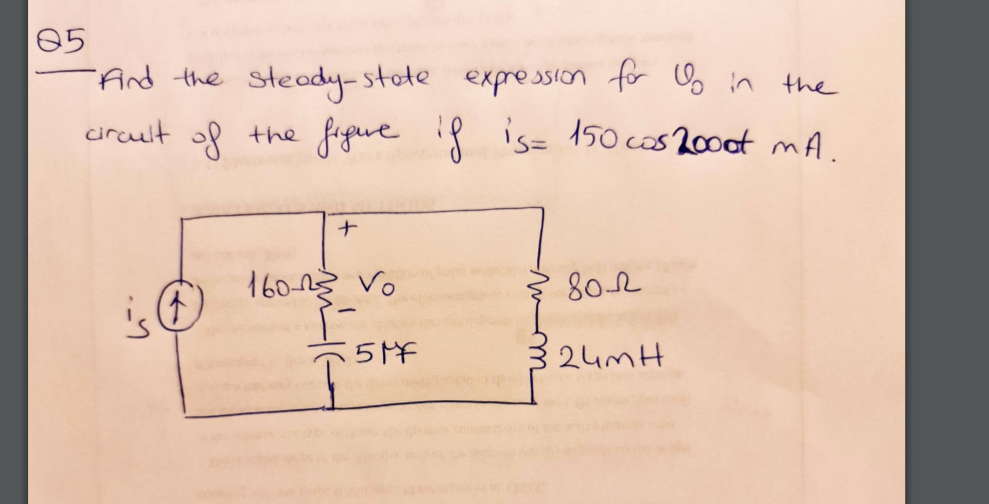 Q5
Find the steady-state expression for v₀ in the
circuit of the figure if is= 150 cos2000t mA.
+
160Ω Vo 80Ω
-
is
5μF 24mH